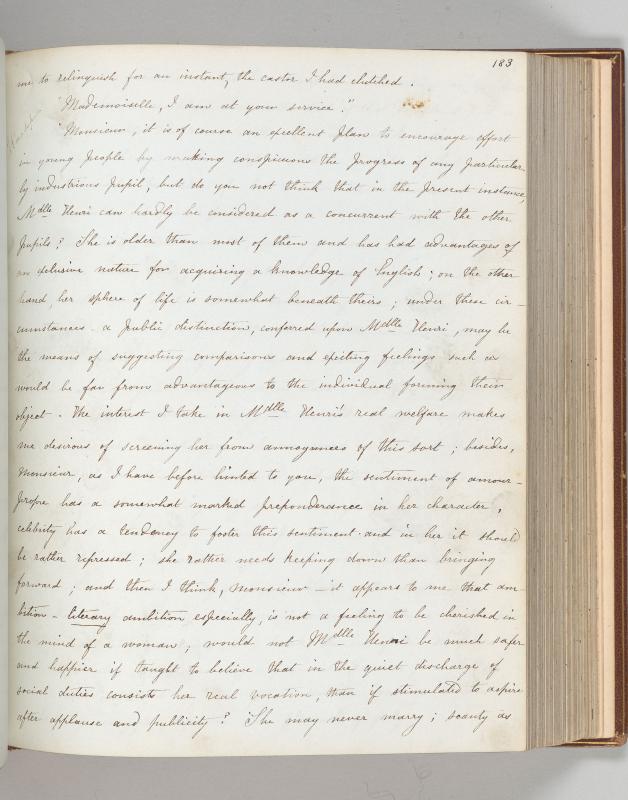 183
me to relinquish for an instant, the castor I had clutched.
"Mademoiselle, I am at your service!"
"Monsieur, it is of course an excellent plan to encourage effort
in young people by making conspicuous the progress of any particular-
ly industrious pupil, but do you not think that in the present instance,
Mdlle Henri can hardly be considered as a concurrent with the other
pupils? She is older than most of them and has had advantages of
an exclusive nature for acquiring a knowledge of English; on the other
hand, her sphere of life is somewhat beneath theirs; under these cir-
cumstances a public distinction, conferred upon Mdlle Henri, may be
the means of suggesting comparisons and exciting feelings such as
would be far from advantageous to the individual forming their
object. The interest I take in Mdlle Henri's real welfare makes
me desirous of screening her from annoyances of this sort; besides,
Monsieur, as I have before hinted to you, the sentiment of amour-
propre has a somewhat marked preponderance in her character,
celebrity has a tendency to foster this sentiment and in her it should
be rather repressed; she rather needs keeping down than bringing
forward; and then I think, Monsieur - it appears to me that am-
bition - literary ambition especially, is not a feeling to be cherished in
the mind of a woman; would not Mdlle Henri be much safer
and happier if taught to believe that in the quiet discharge of
social duties consists her real vocation, than if stimulated to aspire
after applause and publicity? She may never marry; scanty as